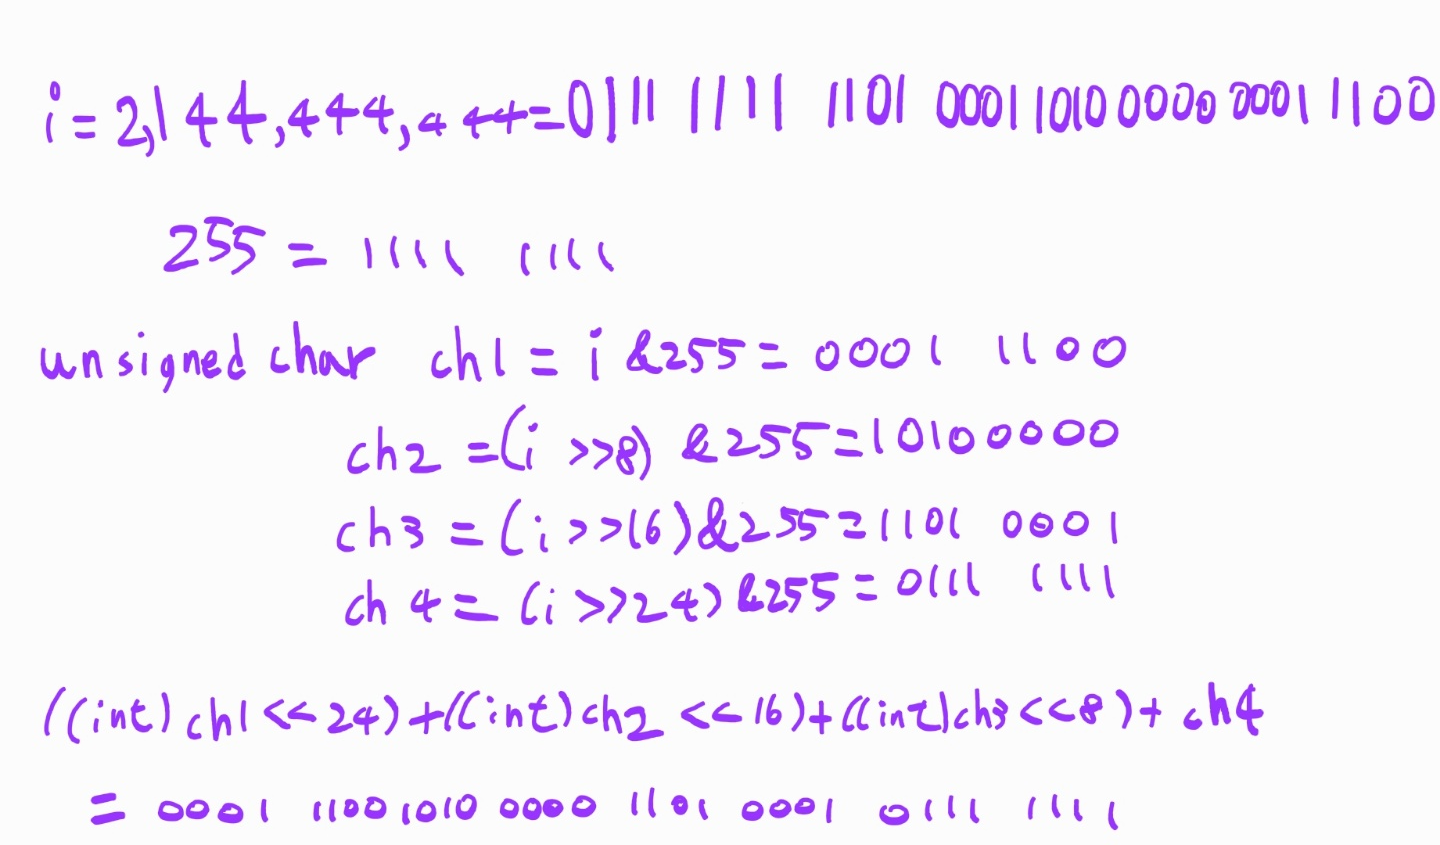 i = 2,144,444,444=0111 1111 1101 0001 1010 0000 0001 1100
255 = 1111 1111
unsigned char ch1 = i &255 = 0001 1100
ch2 =(i >>8) &255=10100000
ch3 = (i >>16)&255=1101 0001
ch4 = (i >>24) &255 = 0111 1111
((int) ch1 << 24)+((int)ch2 << 16)+((int)ch3<<8)+ ch4
= 0001 1100 1010 0000 1101 0001 0111 1111